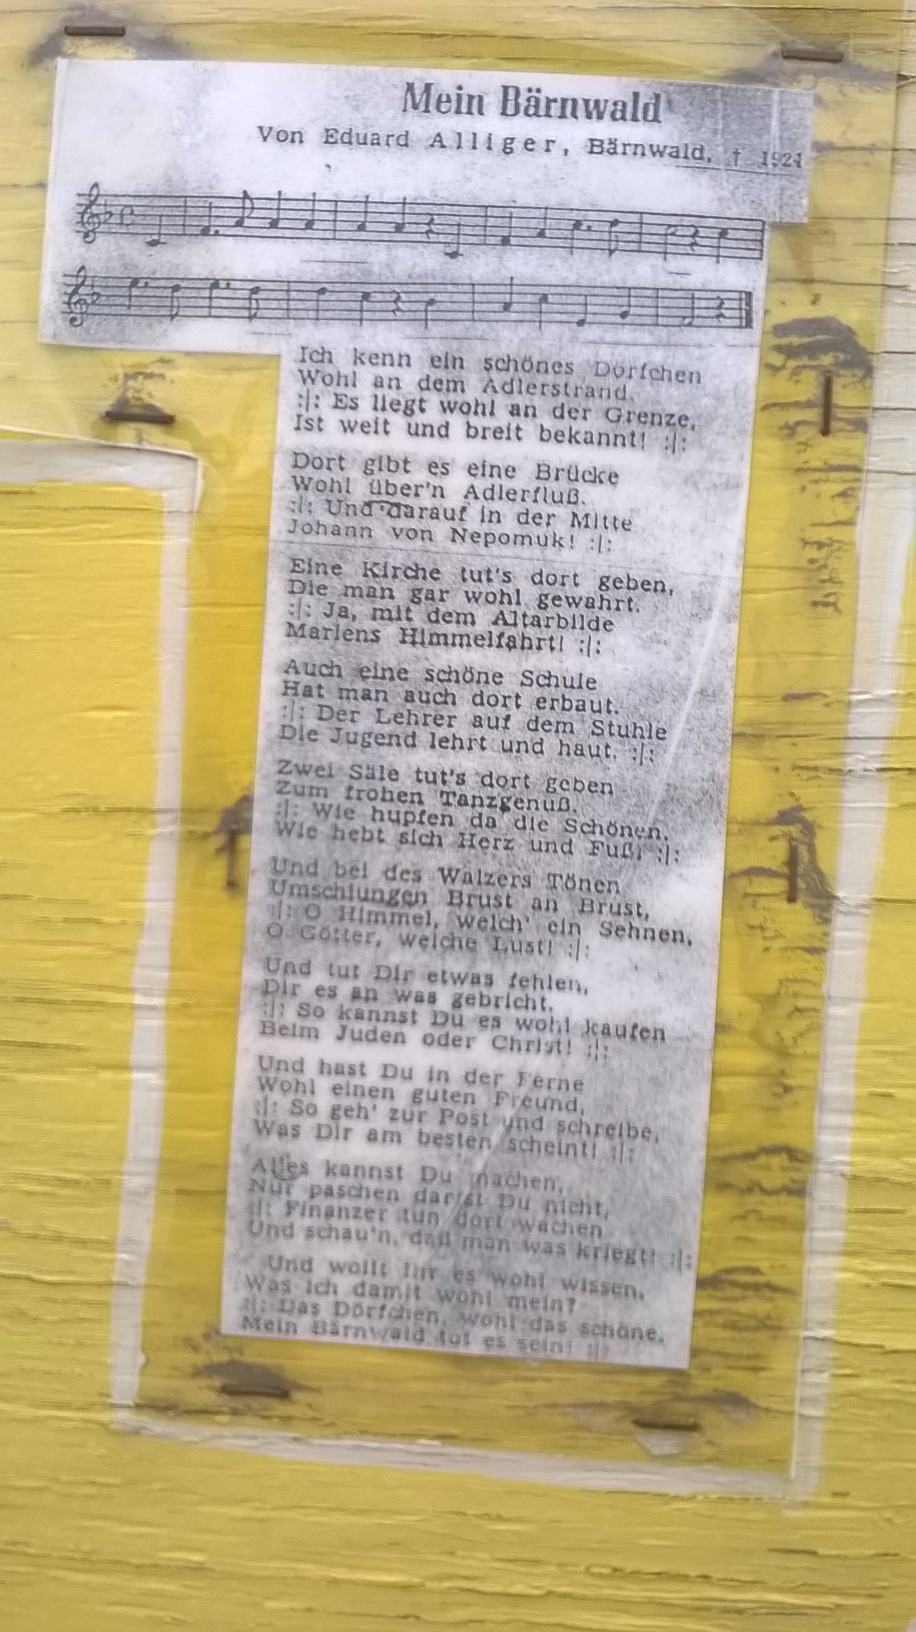 Mein Bärnwald
Von Eduard Alliger, Bärnwald, † 1921
Ich kenn ein schönes Dörfchen
Wohl an dem Adlerstrand.
:|: Es liegt wohl an der Grenze,
Ist weit und breit bekannt! :|:
Dort gibt es eine Brücke
Wohl über'n Adlerfluß.
:|: Und darauf in der Mitte
Johann von Nepomuk! :|:
Eine Kirche tut's dort geben,
Die man gar wohl gewahrt.
:|: Ja, mit dem Altarbilde
Mariens Himmelfahrt! :|:
Auch eine schöne Schule
Hat man auch dort erbaut.
:|: Der Lehrer auf dem Stuhle
Die Jugend lehrt und haut. :|:
Zwei Säle tut's dort geben
Zum frohen Tanzgenuß.
:|: Wie hupfen da die Schönen,
Wie hebt sich Herz und Fuß! :|:
Und bei des Walzers Tönen
Umschlungen Brust an Brust,
:|: O Himmel, welch' ein Sehnen,
O Götter, welche Lust! :|:
Und tut Dir etwas fehlen,
Dir es an was gebricht,
:|: So kannst Du es wohl kaufen
Beim Juden oder Christ! :|:
Und hast Du in der Ferne
Wohl einen guten Freund,
:|: So geh' zur Post und schreibe,
Was Dir am besten scheint! :|:
Alles kannst Du machen,
Nur paschen darfst Du nicht,
:|: Finanzer tun dort wachen
Und schau'n, daß man was kriegt! :|:
Und wollt Ihr es wohl wissen,
Was ich damit wohl mein?
:|: Das Dörfchen, wohl das schöne,
Mein Bärnwald tut es sein! :|: